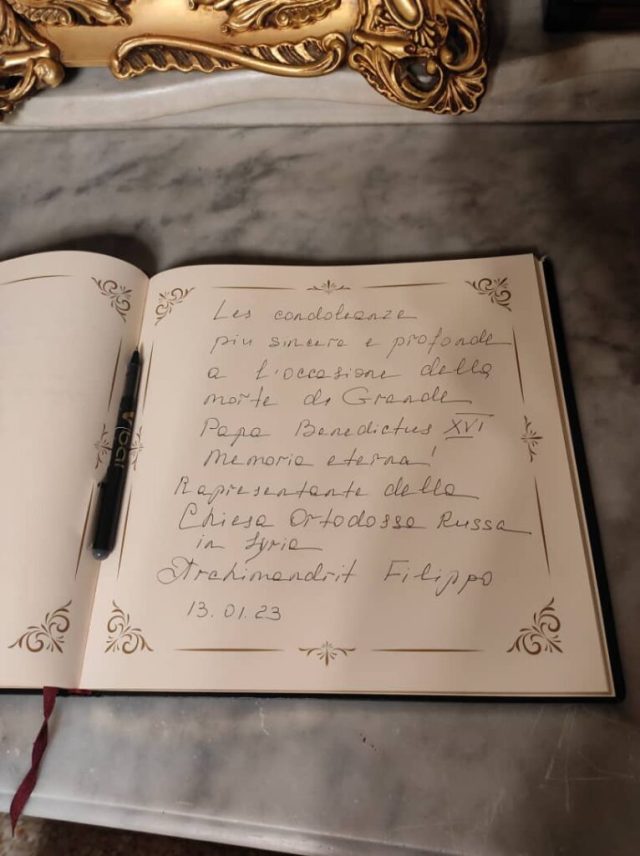 Les condoleanze
piu sincere e profonde
a l'occasione della
morte di Grande
Papa Benedictus XVI
Memoria eterna!
Rapresentante della
Chiesa Ortodossa Russa
in Syria
Archimandrit Filippo
13.01.23